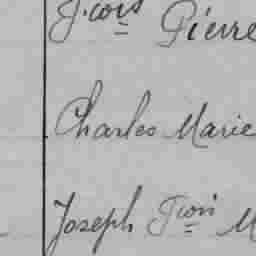 Fcois Pierre
Charles Marie
Joseph Fcois M